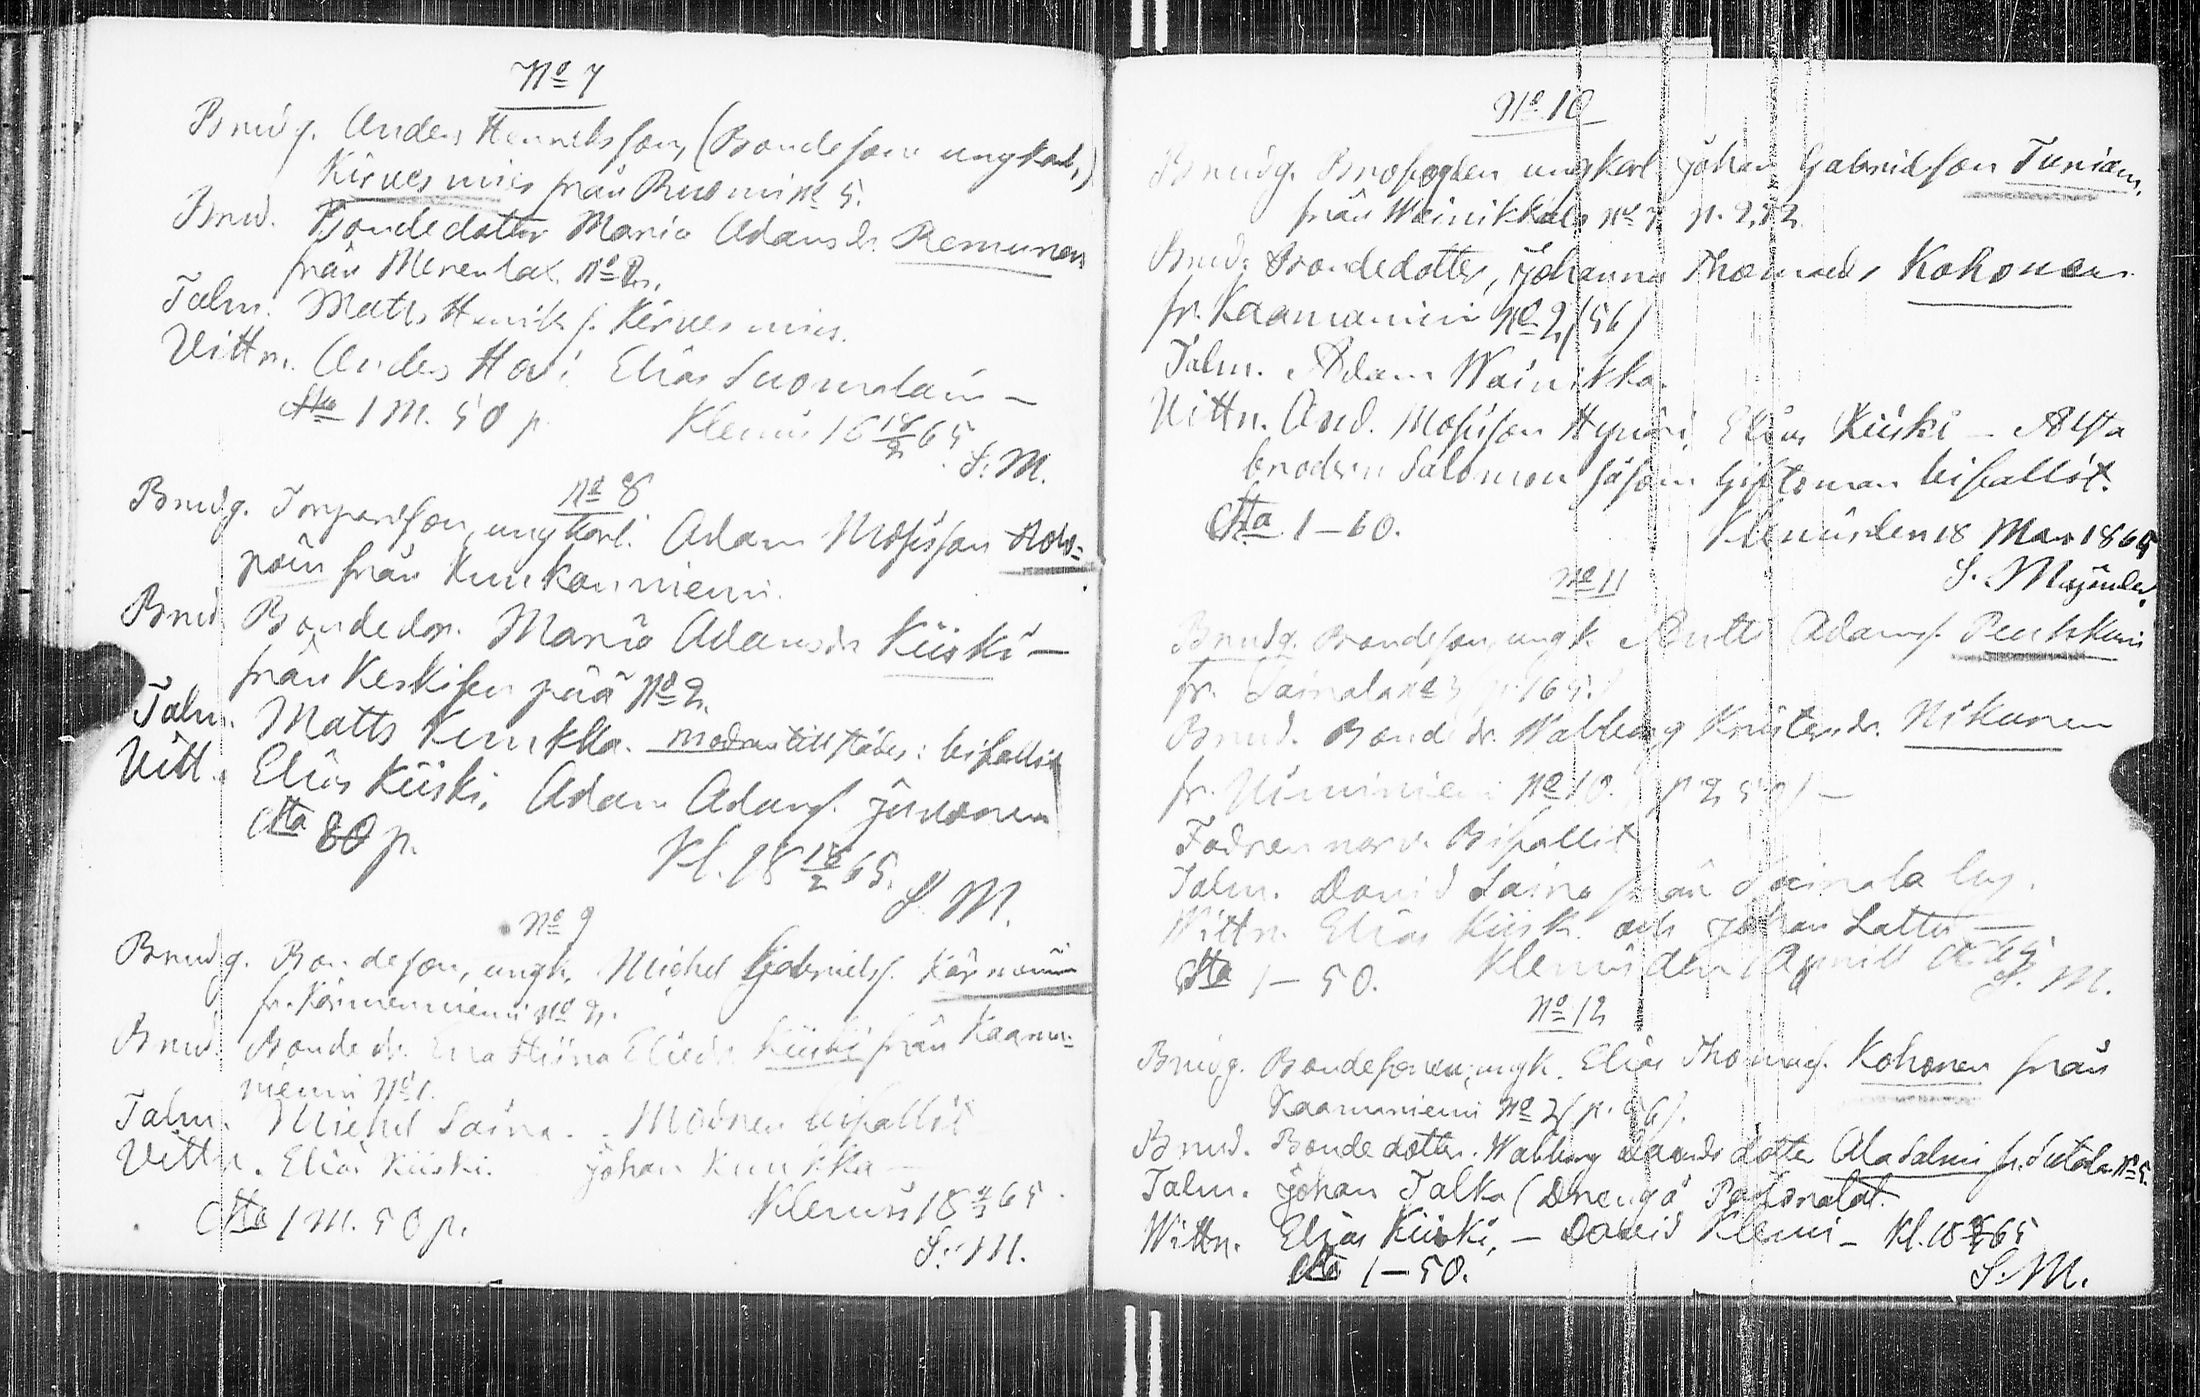 No 7
Brudg. Anders Henriksson, (Bondeson ungkarl,)
Kirvesmies från Ruomi No 5.
Brud. Bondedotter Maria Adamsdr Remunen
från Merenlax. No 2.
Talm. Matts Henriks f. Kirvesmies.
Vittn. Anders Hovi Elias Suomalain –
1 M. 50 p. Klemis 18 18/2 65
S. M.
No 8
Brudg. Torparson, ungkarl. Adam Mosisson
från Kunkanniemi.
Brud Bondedr. Maria Adamsdr Kiiski –
från Keskisenpää No 2.
Talm. Matts Kunkka. Modren tillstädes: bifallit
Vitt. Elias Kiiski, Adam Adamsf. Junonen
80 p. Kl. 18 18/2 65.
S. M.
No 9
Brudg. Bondeson, ungk. Michel Gabrielsf. Kärmänin
fr. Kärmenniemi No 2.
Brud. Bondedr. Eva Stiina Eliedr Kiiski från Kaama-
niemi No 1.
Talm. Michel Saina. Modren bifallit
Vittn. Elias Kiiski. Johan Kunkka –
1 M. 50 p. Klemis 18 65.
S. M.
No 10
Brudg. Brofogden ungkarl Johan Gabrielson Turiain.
från Wainikkala No 7 p. 252
Brud. Bondedotter, Johanna Thomasdr Kohonen
fr. Kaamaniemi No 2 (56)
Talm. Adam Wainikka.
Vittn. And. Mosisson Hyväri Elias Kiiski – Äldsta
brodern Salomon såsom Giftoman bifallit.
1–60. Klemis den 18 Mars 1865
S. Majander.
No 11
Brudg. Bondeson, ungk. Antti Adamsf. Peuhkuri
fr. Sainala No 3 (p. 165.)
Brud. Bondedr. Walborg Kristersdr. Nikunen
fr. Niininiemi No 10. (p 250) –
Fadren narv. Bifallit
Talm. David Saina från Sainala by.
Wittn. Elias Kiiski och Johan Lattu –
1–50. Klemis den 1 April 1865
S. M.
No 12
Brudg. Bondesonen, ungk. Elias Thomasf. Kohonen från
Kaamaniemi No 2 (p. 56).
Brud. Bondedotter. Walborg Davidsdotter Alasalmi fr. Sutela No 5.
Talm. Johan Talka (Dreng å Pastoralat.
Wittn. Elias Kiiski, – David Klemi – Kl. 18 65
1–50. S. M.